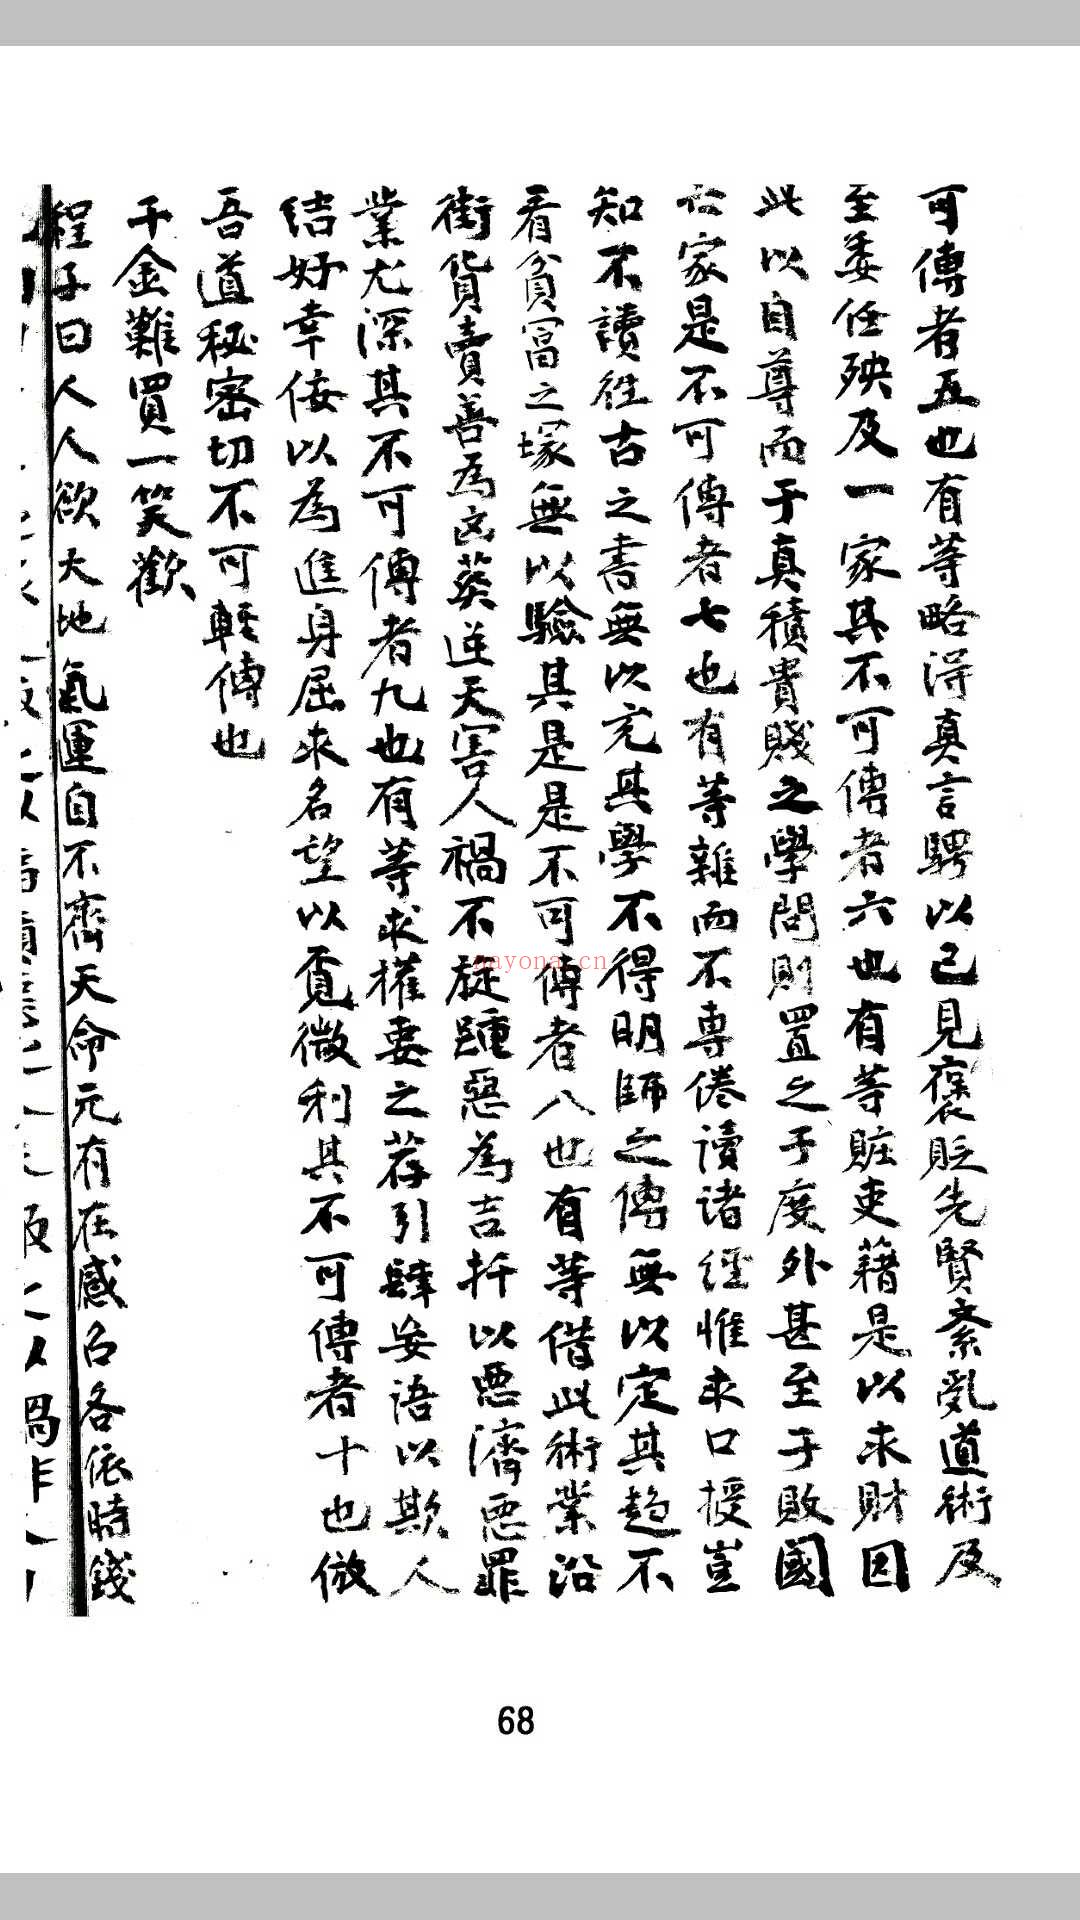 可傳者五也有等略得真言騁以己見褒貶先賢紊亂道術及
至委任殃及一家其不可傳者六也有等賍吏藉是以求財因
此以自尊而于真積貴賤之學問則置之于度外甚至于敗國
亡家是不可傳者七也有等雜而不專倦讀諸經惟求口授豈
知不讀徃古之書無以充其學不得明師之傳無以定其趋不
看貧富之塚無以驗其是是不可傳者八也有等借此術業沿
街貨賣善為凶葵逆天害人禍不旋踵惡為吉扦以悪濟悪罪
業尤深其不可傳者九也有等求權要之荐引肆妄語以欺人
结好幸佞以為進身屈求名望以覓微利其不可傳者十也倣
吾道秘密切不可輕傳也
千金難買一笑歡
程子曰人人欲大地氣運自不齊天命元有在感召各依時錢
nayona.cn
68